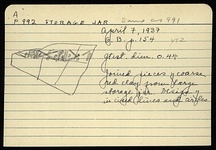 A
P 992 STORAGE JAR Same as 991
April 7, 1937
B. p. 154
Gtest. dim. 0.47
Joined pieces of coarse
red clay from large
storage jar. Design
in incised lines and circles